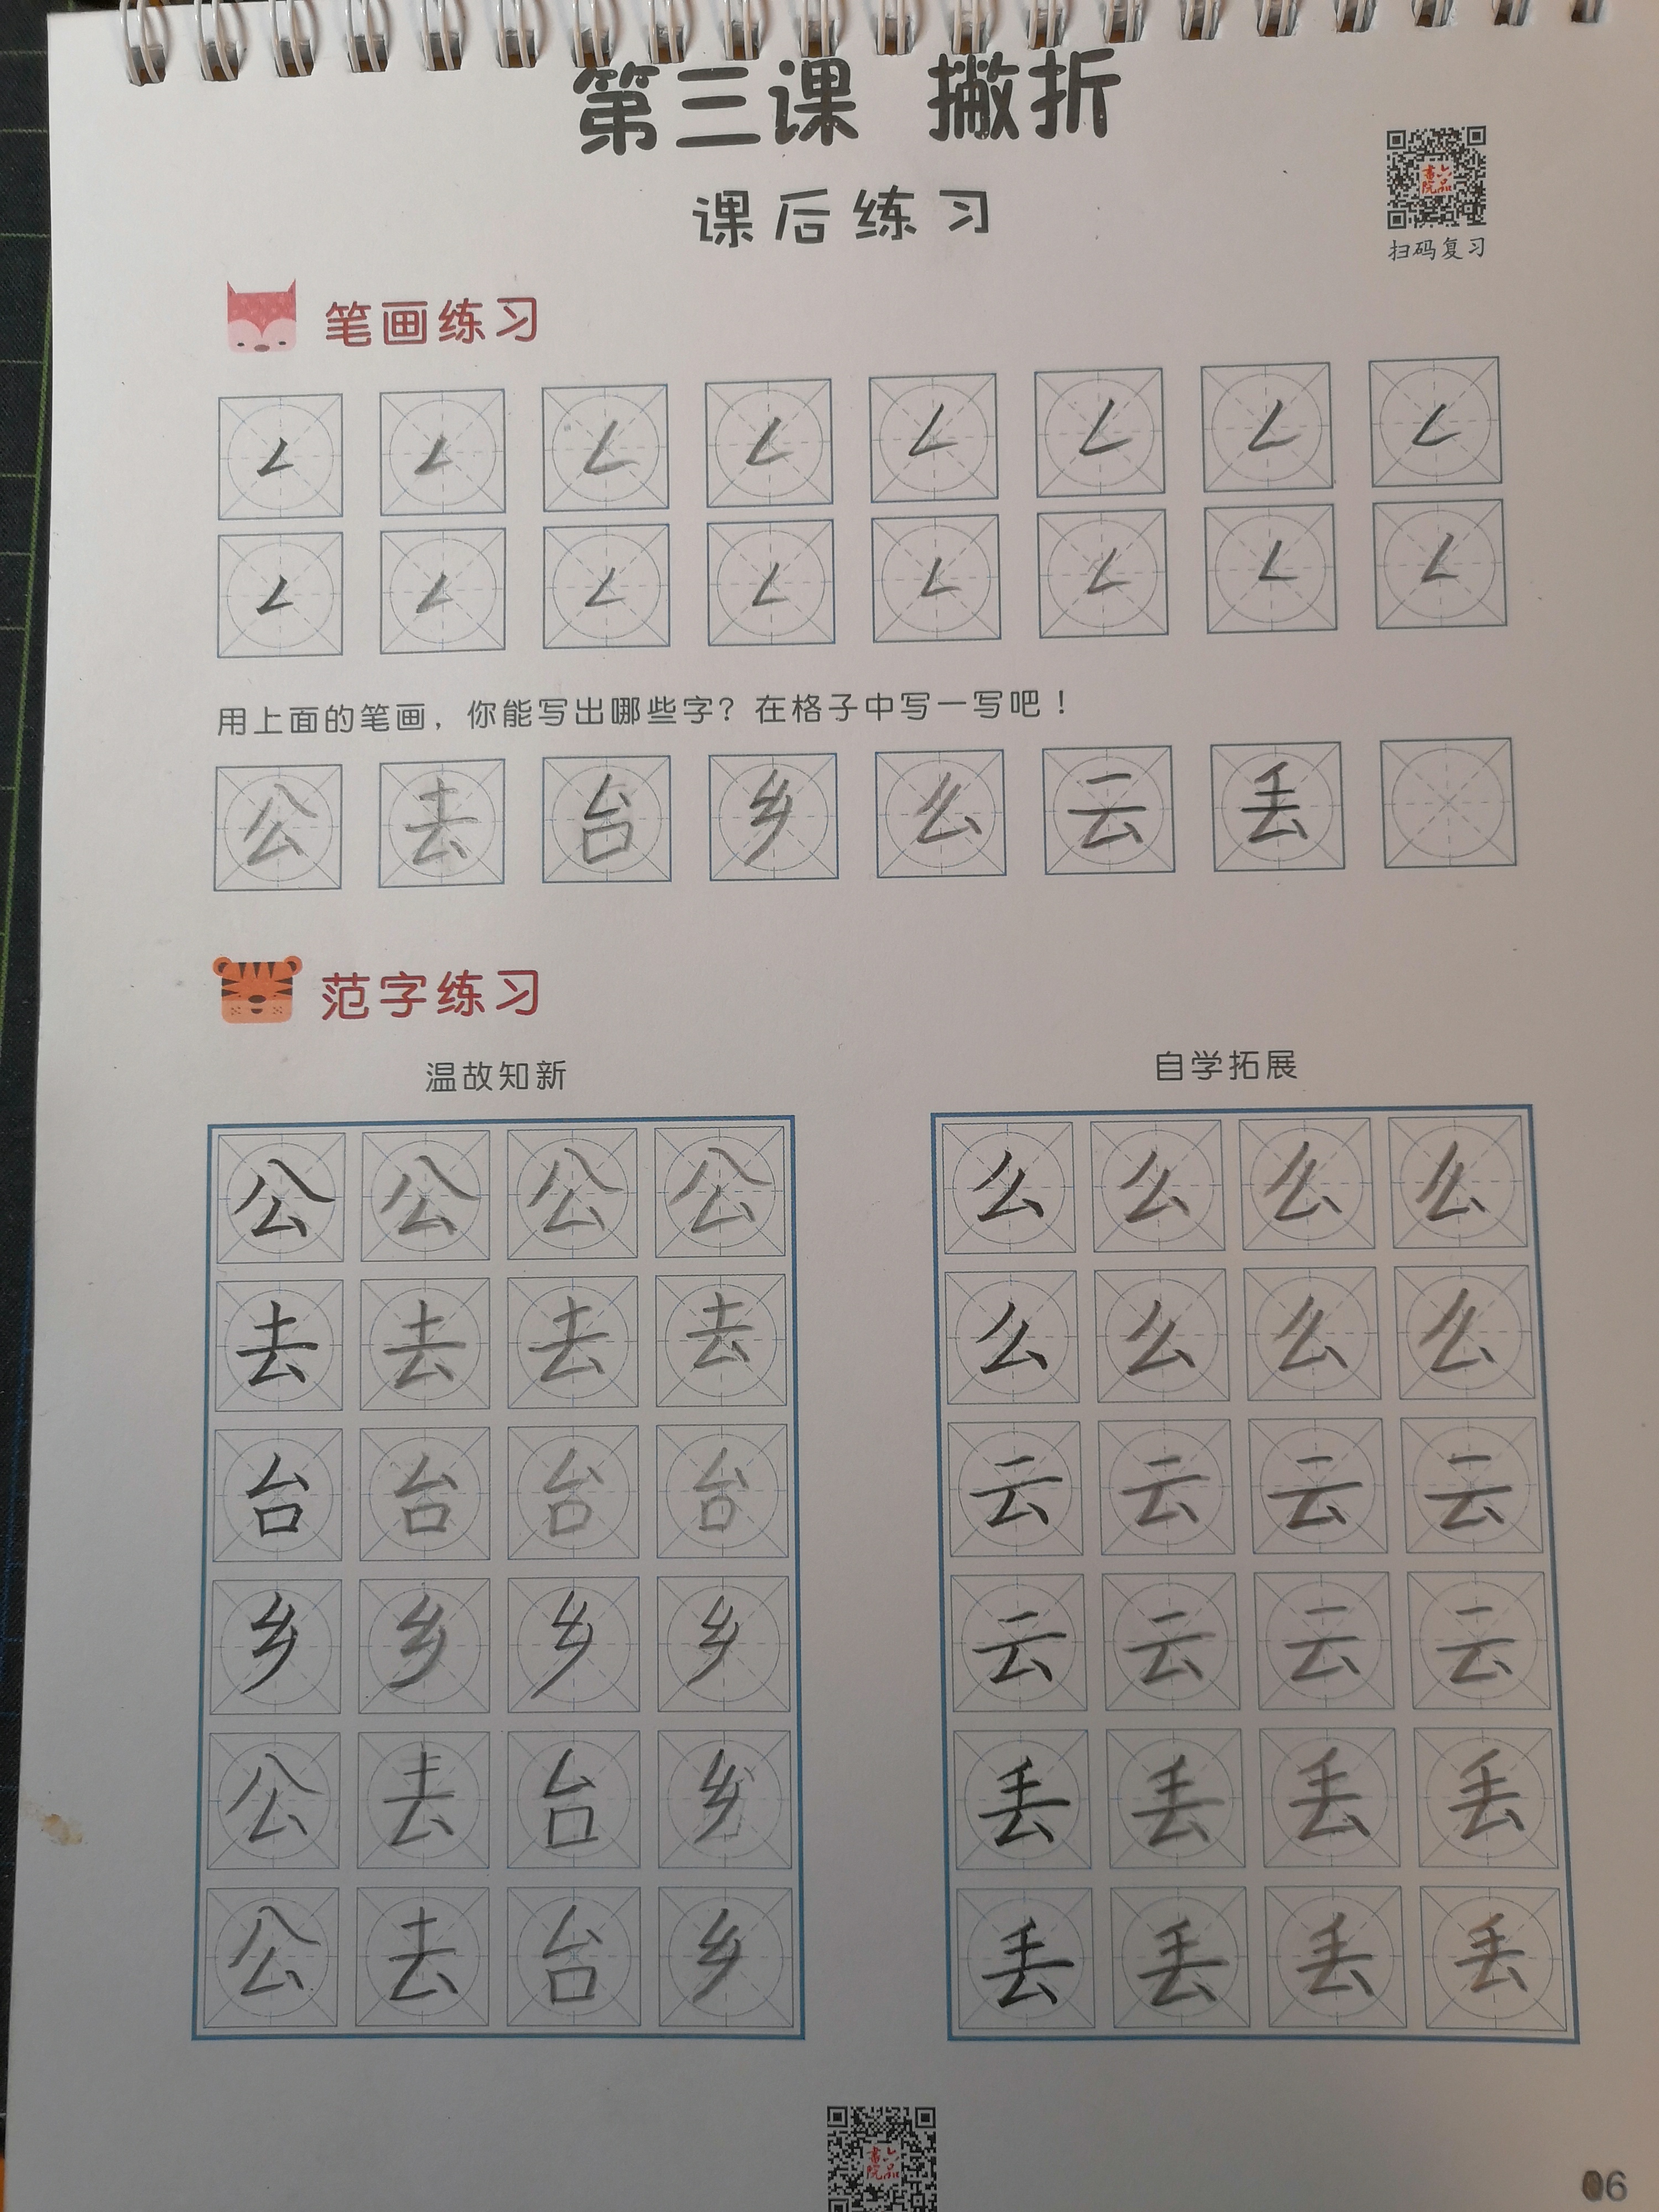 第三课 撇折
课后练习
扫码复习
笔画练习
用上面的笔画，你能写出哪些字？在格子中写一写吧！
公 去 台 乡 么 云 丢
范字练习
温故知新
公 公 公 公
去 去 去 去
台 台 台 台
乡 乡 乡 乡
公 去 台 乡
公 去 台 乡
自学拓展
么 么 么 么
么 么 么 么
云 云 云 云
云 云 云 云
丢 丢 丢 丢
丢 丢 丢 丢
06